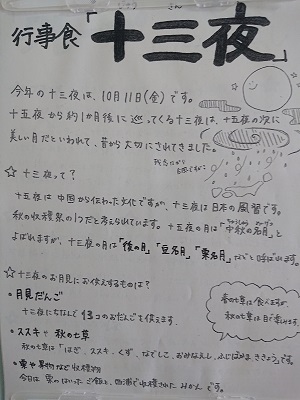 行事食「十三夜」
今年の十三夜は、10月11日(金)です。
十五夜から約1か月後に巡ってくる十三夜は、十五夜の次に
美しい月だといわれて、昔から大切にされてきました。
☆ 十三夜って?
十五夜は中国から伝わった文化ですが、十三夜は日本の風習です。
秋の収穫祭の1つだと考えられています。十五夜の月は「中秋の名月」と
よばれますが、十三夜の月は「後の月」「豆名月」「栗名月」などと呼ばれます。
☆ 十三夜のお月見にお供えするものは?
・月見だんご
十三夜にちなんで13コのおだんごを供えます。
・ススキや秋の七草
秋の七草は「はぎ、ススキ、くず、なでしこ、おみなえし、ふじばかま、ききょう」です。
春の七草は食べますが、
秋の七草は目で楽しみます。
・栗や果物など収穫物
今日は栗のはいったご飯と、西浦で収穫されたみかんです。